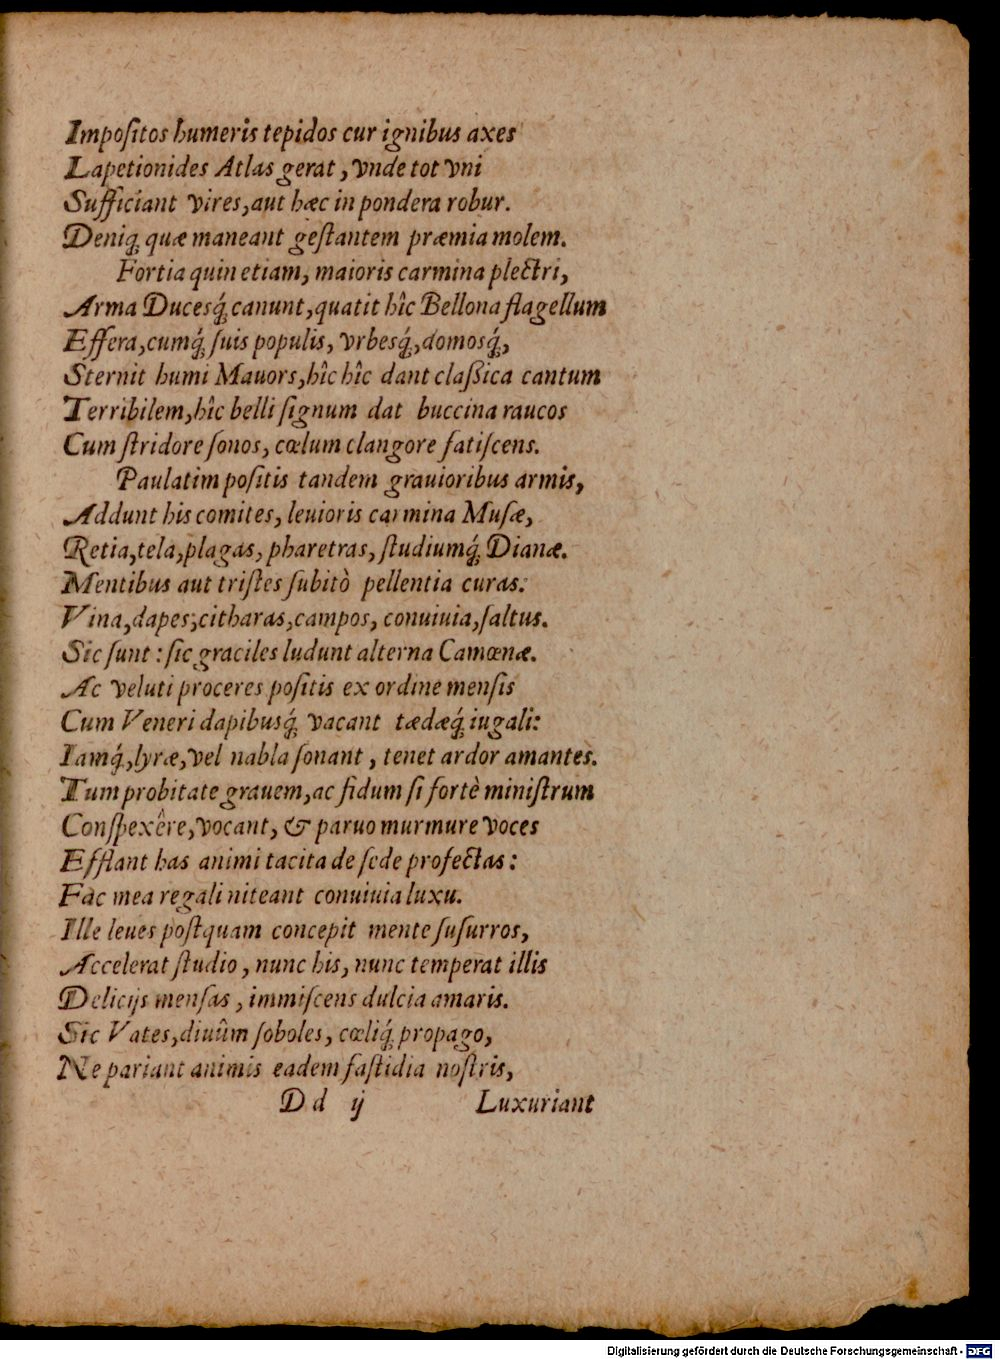 Impoſitos humeris tepidos cur ignibus axes
Lapetionides Atlas gerat, vnde tot vni
Sufficiant vires, aut hæc in pondera robur.
Deniq́; quæ maneant geſtantem præmia molem.
Fortia quin etiam, maioris carmina plectri,
Arma Ducesq́; canunt, quatit hîc Bellona flagellum
Effera, cumq́; ſuis populis, vrbesq́;, domosq́;,
Sternit humi Mauors, hîc hîc dant claßica cantum
Terribilem, hîc belli ſignum dat buccina raucos
Cum ſtridore ſonos, cœlum clangore fatiſcens.
Paulatim poſitis tandem grauioribus armis,
Addunt his comites, leuioris carmina Muſæ,
Retia, tela, plagas, pharetras, ſtudiumq́; Dianæ.
Mentibus aut triſtes ſubitò pellentia curas:
Vina, dapes; citharas, campos, conuiuia, ſaltus.
Sic ſunt: ſic graciles ludunt alterna Camœnæ.
Ac veluti proceres poſitis ex ordine menſis
Cum Veneri dapibusq́; vacant tædæq́; iugali:
Iamq́;, lyræ, vel nabla ſonant, tenet ardor amantes.
Tum probitate grauem, ac fidum ſi fortè miniſtrum
Conſpexêre, vocant, & paruo murmure voces
Efflant has animi tacita de ſede profectas:
Fac mea regali niteant conuiuia luxu.
Ille leues poſtquam concepit mente ſuſurros,
Accelerat ſtudio, nunc his, nunc temperat illis
Delicijs menſas, immiſcens dulcia amaris.
Sic Vates, diuûm ſoboles, cœliq́; propago,
Ne pariant animis eadem faſtidia noſtris,
D d ij Luxuriant
Digitalisierung gefördert durch die Deutsche Forschungsgemeinschaft - DFG